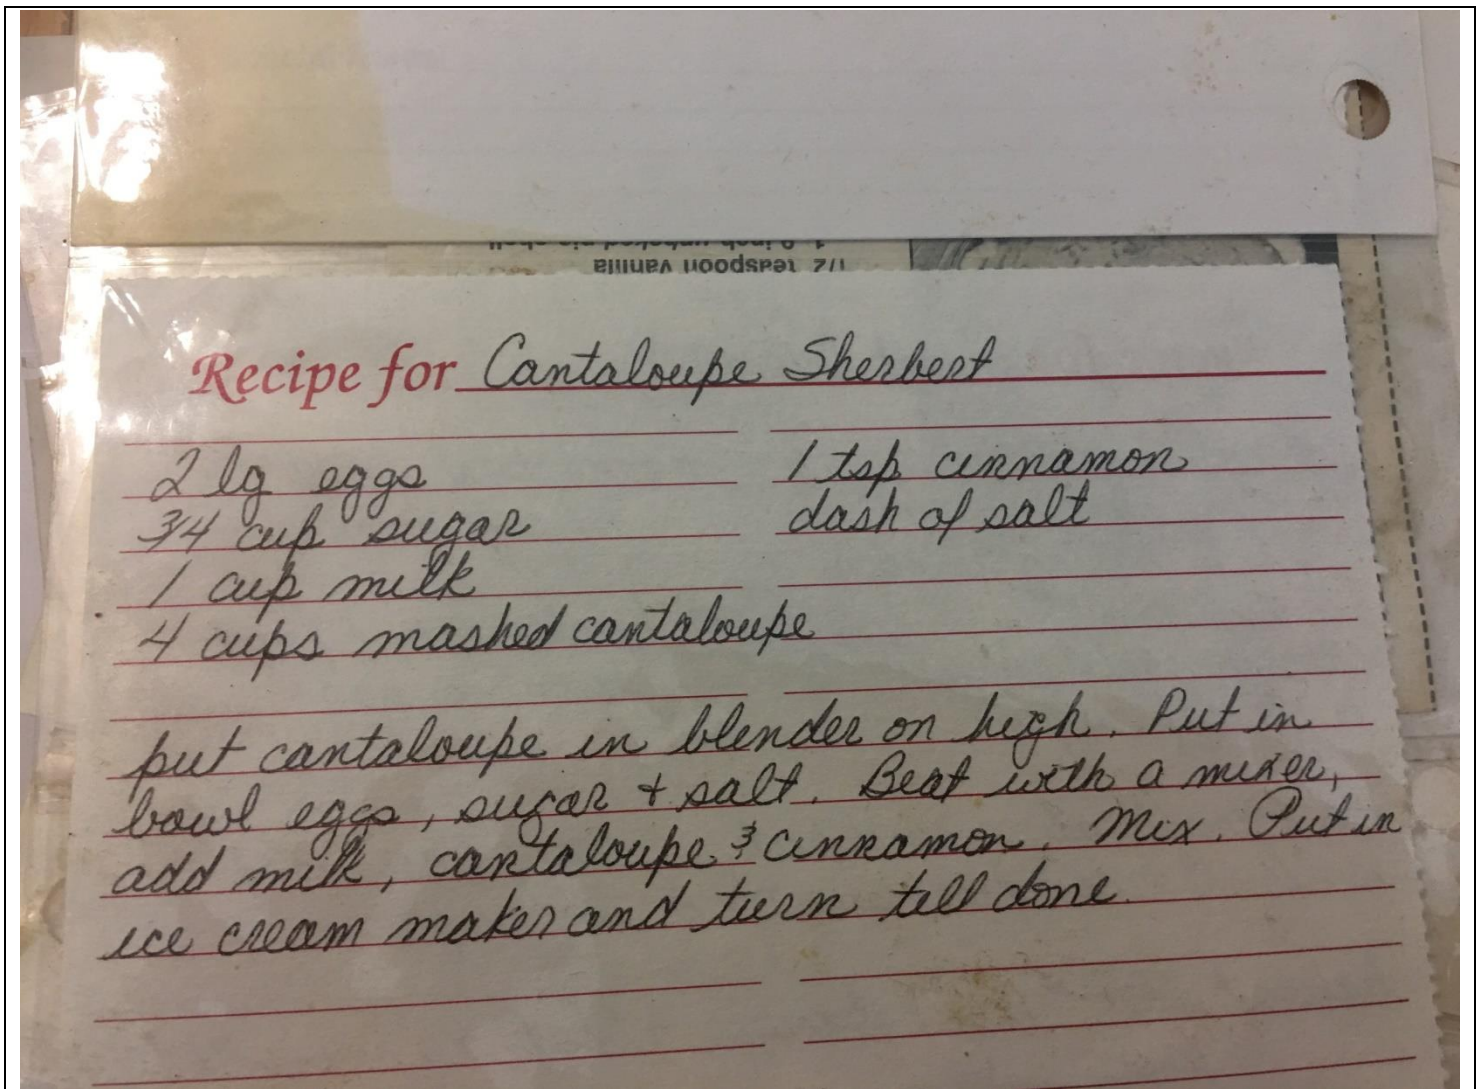 1 9 inch unbaked pie shell
1/2 teaspoon vanilla
Recipe for Cantaloupe Sherbert
2 lg eggs
3/4 cup sugar
1 cup milk
4 cups mashed cantaloupe
1 tsp cinnamon
dash of salt
put cantaloupe in blender on high. Put in
bowl eggs, sugar + salt. Beat with a mixer,
add milk, cantaloupe & cinnamon. Mix. Put in
ice cream maker and turn till done.